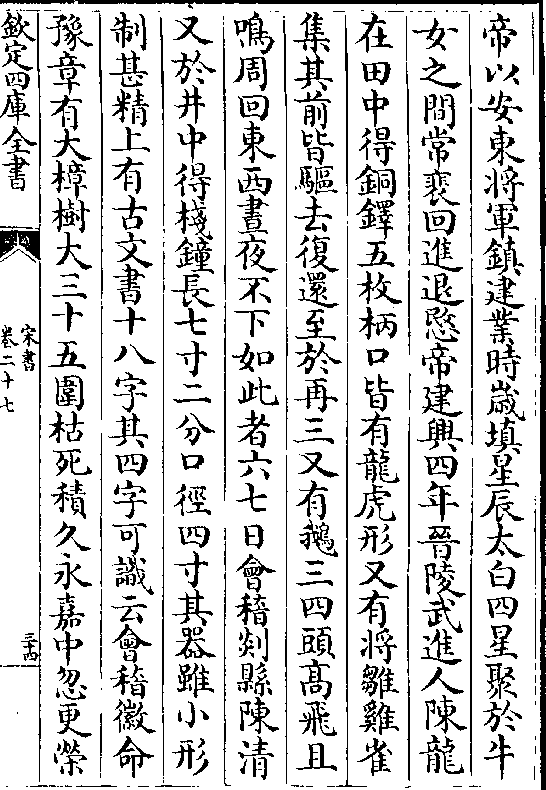 帝以安東将軍鎮建業時歳填星辰太白四星聚於牛
女之間常裵回進退愍帝建興四年晉陵武進人陳龍
在田中得銅鐸五枚柄口皆有龍虎形又有将雛雞雀
集其前皆驅去復還至於再三又有鵝三四頭髙飛且
鳴周回東西晝夜不下如此者六七日會稽剡縣陳清
又於井中得棧鐘長七寸二分口徑四寸其器雖小形
制甚精上有古文書十八字其四字可識云會稽徽命
豫章有大樟樹大三十五圍枯死積久永嘉中忽更榮
欽定四庫全書
宋書
卷二十七
三十四